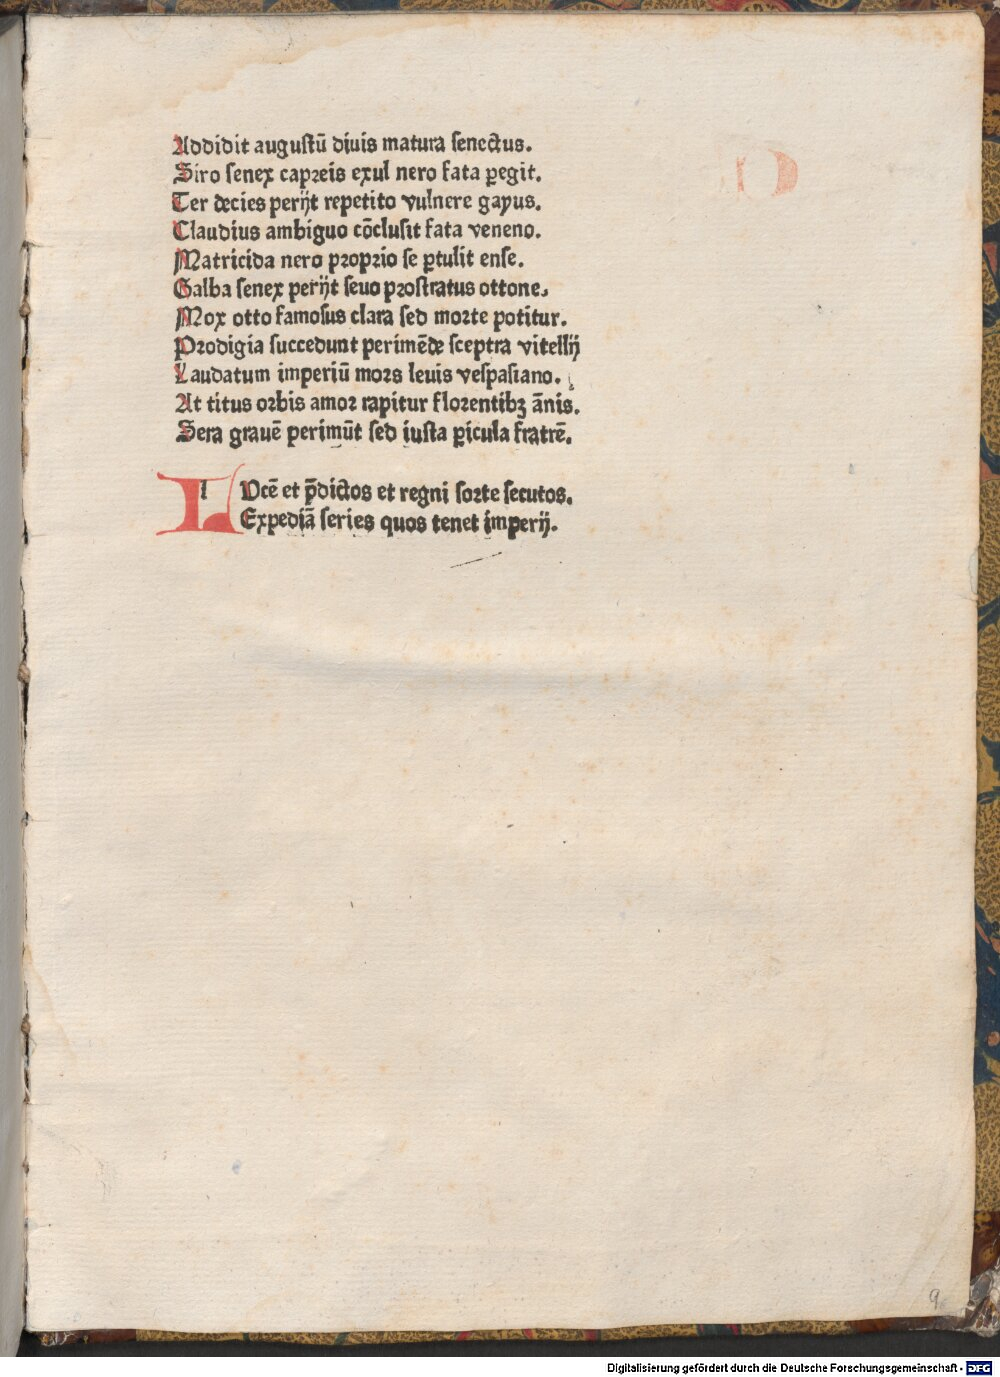 Addidit augustū diuis matura senectus.
Siro senex capreis exul nero fata ꝑegit.
Ter decies perijt repetito vulnere gayus.
Claudius ambiguo cōclusit fata veneno.
Matricida nero proprio se ꝑtulit ense.
Galba senex perijt seuo prostratus ottone.
Mox otto famosus clara sed morte potitur.
Prodigia succedunt perimēde sceptra vitellij
Laudatum imperiū mors leuis vespasiano.
At titus orbis amor rapitur florentibꝫ ānis.
Sera grauē perimūt sed iusta ꝑicula fratrē.
L Ucē et p̄dictos et regni sorte secutos.
Expediā series quos tenet imperij.
9
Digitalisierung gefördert durch die Deutsche Forschungsgemeinschaft - DFG